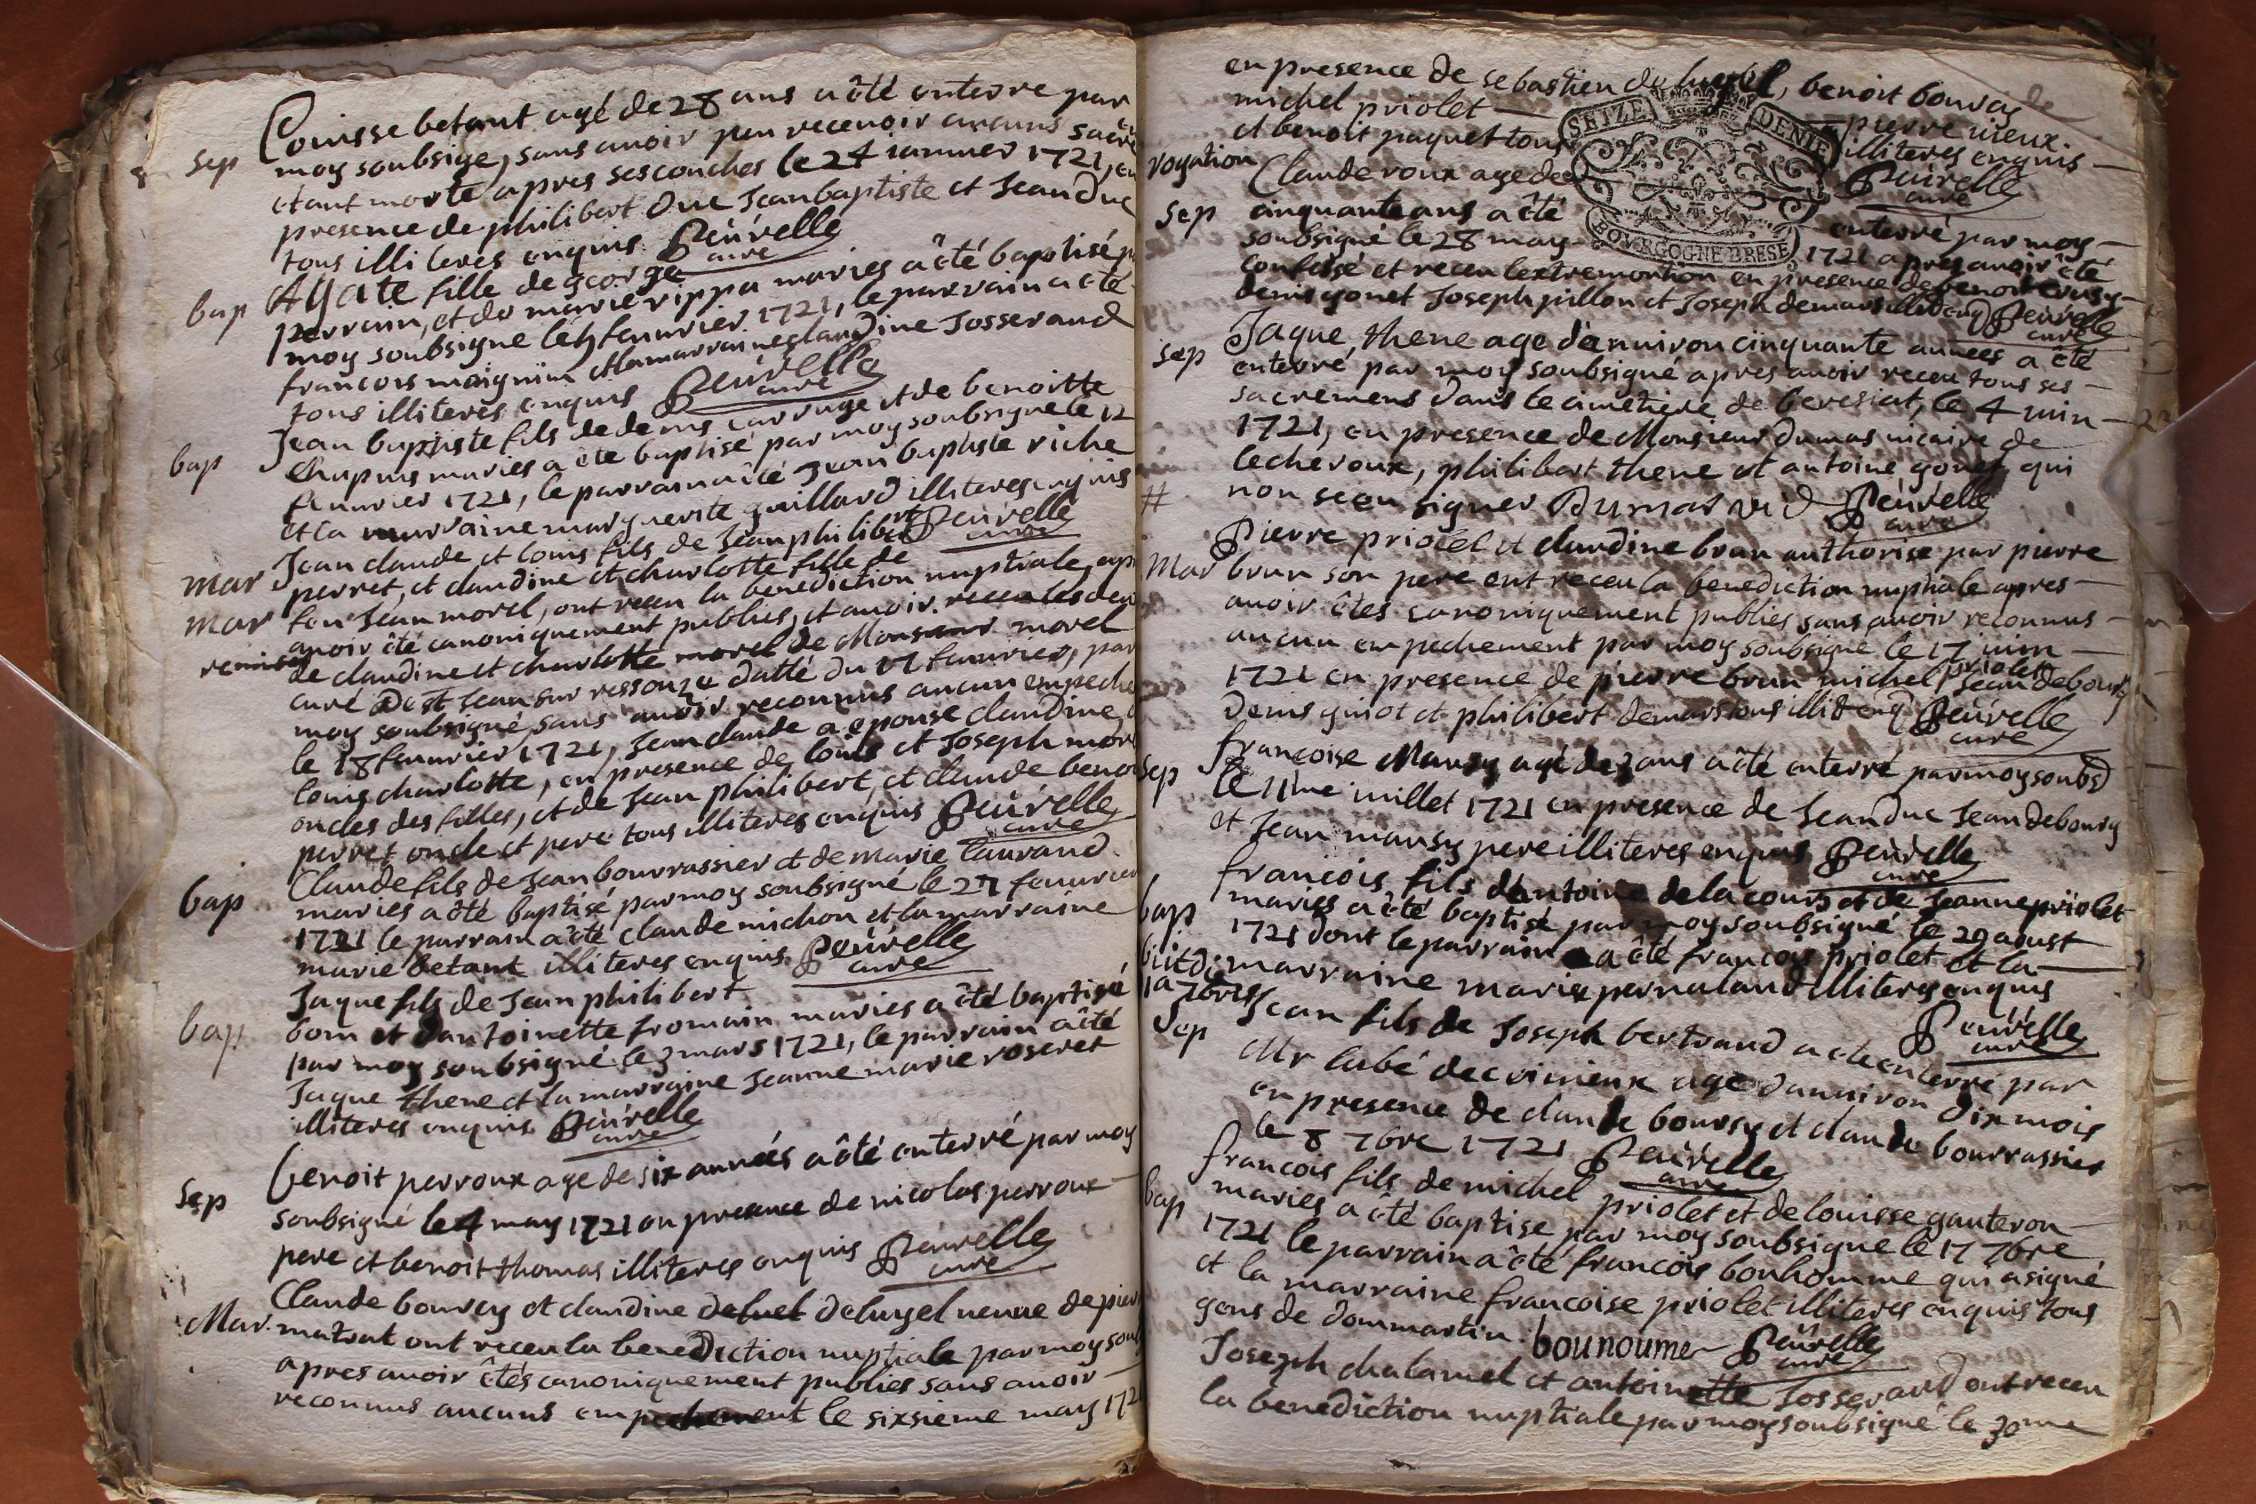 Louisse betant agé de 28 ans a êté enterre par
sep moy soubsigé, sans avoir peu recevoir aucuns sacre
etant morte apres ses couches le 24 ianuier 1721, en
presence de philibert duc Jean baptiste et Jean duc
tous illiteres enquis Peuvelle curé
bap Agate fille de george
perrain, et de marie rippa maries a êté baptisé p
moy soubsigne le feuurier 1721, le parrain a eté
francois et la marraine glaudine Josserand
tous illiteres enquis Peuvelle curé
bap Jean baptiste fils de denis carruge et de benoitte
Chapuis maries a êté baptisé par moy soubsigné le 12
feuurier 1721, le parrain a êté Jean baptiste riche
et la marraine marguerite guillard illiteres enquis
Peuvelle curé
mar Jean claude et louis fils de Jean philibert
perret, et claudine et charlotte fille de
mar feu Jean morel, ont receu la benediction nuptiale, apr
avoir êté canoniquement publies, et avoir
remises de claudine et charlotte morel de Monsieur morel
curé de st Jean sur ressouze datté du 17 feuurier, par
moy soubsigné sans avoir reconnus aucun empeche
le 18 feuurier 1721, Jean claude a epousé claudine
louis charlotte, en presence de louis et Joseph mor
oncles des filles, et de Jean philibert, et claude benoi
perret oncle et pere tous illiteres enquis Peuvelle curé
bap Claude fils de Jean bourrassier et de marie laurand
maries a êté baptisé par moy soubsigné le 27 feuurier
1721 le parrain a êté claude michon et la marraine
marie betant illiteres enquis Peuvelle curé
Jaque fils de Jean philibert
bap born et dantoinette fromain maries a êté baptisé
par moy soubsigné le 3 mars 1721, le parrain a êté
Jaque thene et la marraine Jeanne marie roseret
illiteres enquis Peuvelle curé
sep benoit perroux age de six années a êté enterré par moy
soubsigné le 4 may 1721 en presence de nicolas perroux
pere et benoit thomas illiteres enquis Peuvelle curé
Mar Claude bouvey et claudine deluel veuve de pier
matrat ont receu la benediction nuptiale par moy soub
apres avoir êtés canoniquement publies sans avoir
reconnus aucuns empechement le sixsieme may 172
en presence de sebastien benoit bouvey
michel priolet pierre vieux
et benoit paquet tous illiteres enquis
SEIZE DENIE
BOURGOGNE BRESE
Peuvelle curé
rogation
sep Claude roux age de
cinquante ans a êté enterré par moy
soubsigné le 28 may 1721 apres avoir êté
confessé et receu lextremontion en presence de benoit
denis gonet Joseph pillon et Joseph demars illit enq Peuvelle curé
sep Jaque thene age denuiron cinquante années a êté
enterré par moy soubsigné apres avoir receu tous ses
sacremens dans le cimetiere de beresiat, le 4 iuin
1721, en presence de Monsieur dumas vicaire de
lecheroux, philibert thene et antoine gonet, qui
# non sceu signer Dumas vic Peuvelle curé
Pierre priolet et claudine brun authorise par pierre
Mar brun son pere ont receu la benediction nuptiale apres
avoir êtés canoniquement publies sans avoir reconnus
aucun empechement par moy soubsigné le 17 iuin
1721 en presence de pierre brun michel priolet Jean debourg
denis guiot et philibert demars tous illit enq Peuvelle curé
sep francoise Mansy agé de 3 ans a êté enterré par moy soubs
le 11me iuillet 1721 en presence de Jean duc Jean debourg
et Jean mansy pere illiteres enquis Peuvelle curé
bap francois fils dantoine de la cour et de Jeanne priolet
maries a êté baptisé par moy soubsigné le 29 aoust
1721 dont le parrain a êté francois priolet et la
marraine marie pernaland illiteres enquis
Peuvelle curé
Sep Jean fils de Joseph bertrand a ete enterré par
Mr labé decrivieux agé danuiron dix mois
en presence de claude boursy et claude bourrassier
le 8 7bre 1721 Peuvelle curé
bap francois fils de michel priolet et de louisse gauteron
maries a êté baptise par moy soubsigné le 17 7bre
1721 le parrain a êté francois bonhomme qui a signé
et la marraine francoise priolet illiteres enquis tous
gens de dommartin bounoume Peuvelle curé
Joseph chalamel et antoinette Josserand ont receu
la benediction nuptiale par moy soubsigné le 30me